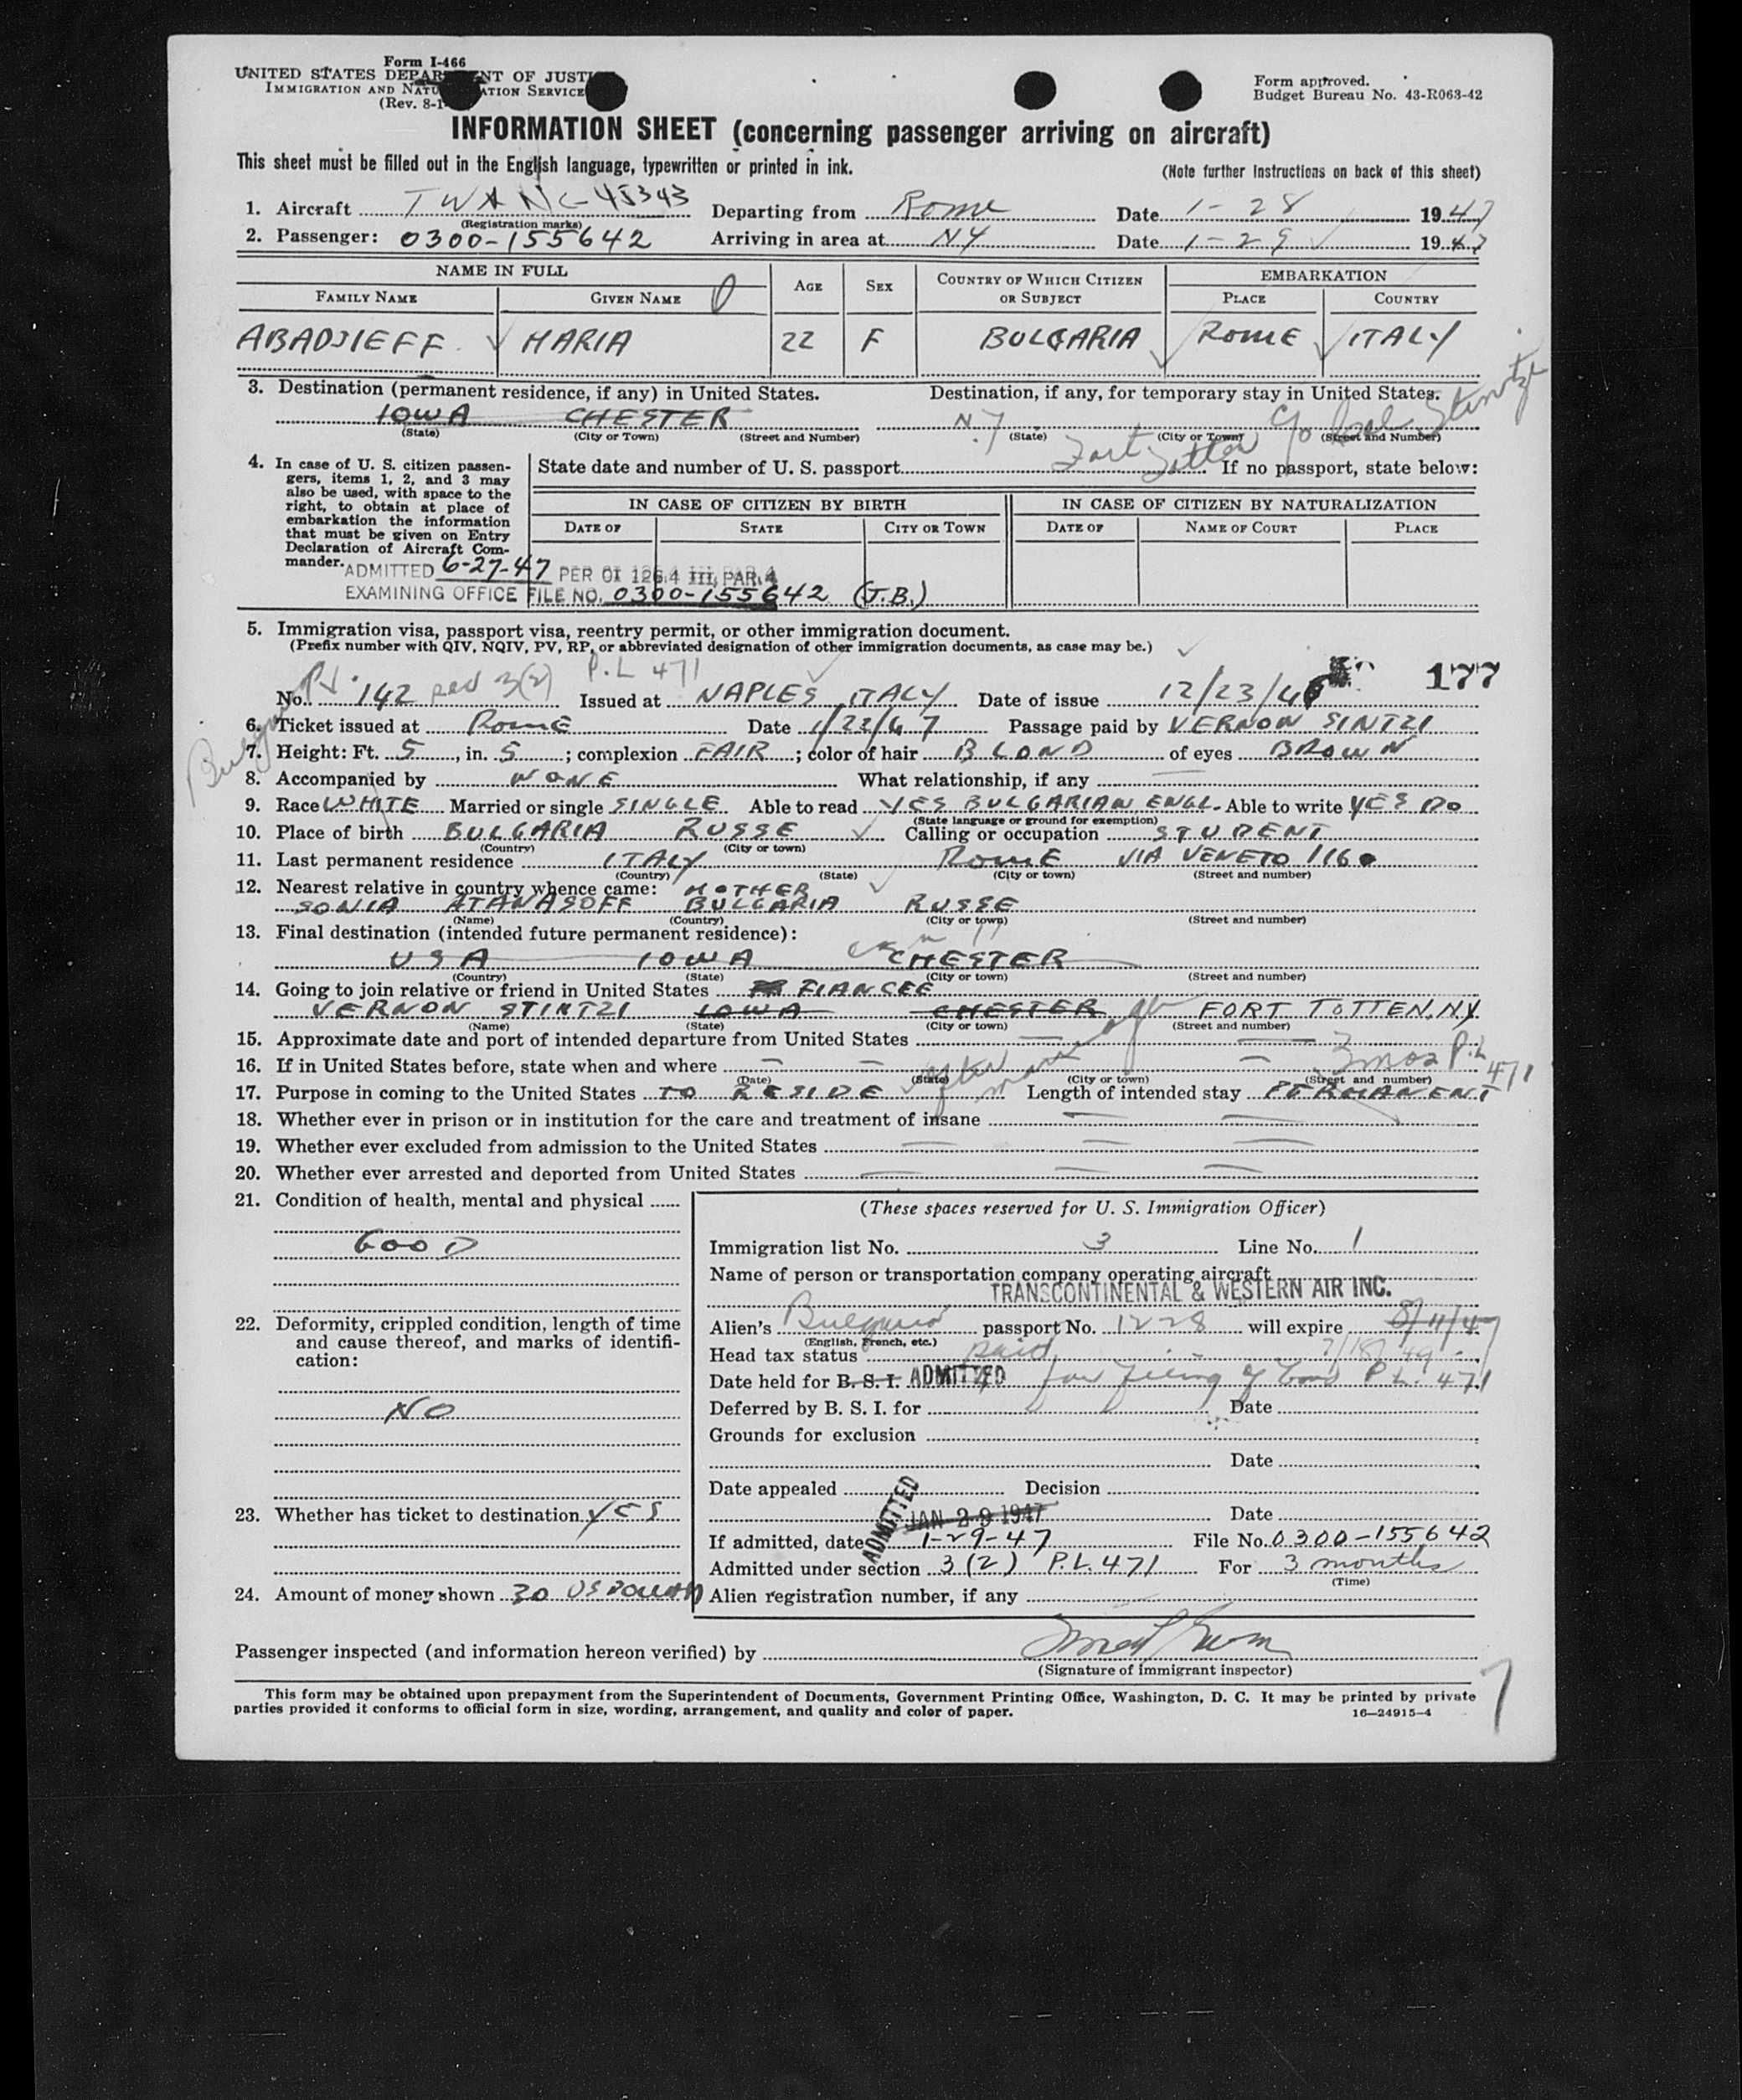 Form I-466
UNITED STATES DEPARTMENT OF JUSTICE
IMMIGRATION AND NATURALIZATION SERVICE
(Rev. 8-1
Form approved.
Budget Bureau No. 43-R063-42
INFORMATION SHEET (concerning passenger arriving on aircraft)
This sheet must be filled out in the English language, typewritten or printed in ink.
(Note further instructions on back of this sheet)
1. Aircraft TWA NC-45343 Departing from Rome Date 1-28 1947
(Registration marks)
2. Passenger: 0300-155642 Arriving in area at NY Date 1-29 1947
NAME IN FULL AGE SEX COUNTRY OF WHICH CITIZEN OR SUBJECT EMBARKATION
FAMILY NAME GIVEN NAME PLACE COUNTRY
ABADJIEFF MARIA 22 F BULGARIA ROME ITALY
3. Destination (permanent residence, if any) in United States. Destination, if any, for temporary stay in United States.
IOWA CHESTER N.Y c/o
(State) (City or Town) (Street and Number) (State) (City or Town) (Street and Number)
Fort Totten
4. In case of U. S. citizen passengers, items 1, 2, and 3 may also be used, with space to the right, to obtain at place of embarkation the information that must be given on Entry Declaration of Aircraft Commander.
State date and number of U. S. passport If no passport, state below:
IN CASE OF CITIZEN BY BIRTH IN CASE OF CITIZEN BY NATURALIZATION
DATE OF STATE CITY OR TOWN DATE OF NAME OF COURT PLACE
ADMITTED 6-27-47 PER OI 126.4 III, PAR.4
EXAMINING OFFICE FILE NO. 0300-155642 (J.B.)
5. Immigration visa, passport visa, reentry permit, or other immigration document.
(Prefix number with QIV, NQIV, PV, RP, or abbreviated designation of other immigration documents, as case may be.)
P.L 471
177
No. PV. 142 sec 3(2) Issued at NAPLES, ITALY Date of issue 12/23/46
6. Ticket issued at Rome Date 1/22/47 Passage paid by VERNON SINTZI
7. Height: Ft. 5, in. 5; complexion FAIR; color of hair BLOND of eyes BROWN
8. Accompanied by NONE What relationship, if any
9. Race WHITE Married or single SINGLE Able to read YES BULGARIAN ENGL. Able to write YES DO
(State language or ground for exemption)
10. Place of birth BULGARIA RUSSE Calling or occupation STUDENT
(Country) (City or town)
11. Last permanent residence ITALY ROME VIA VENETO 116
(Country) (State) (City or town) (Street and number)
12. Nearest relative in country whence came: MOTHER
SONIA ATANASOFF BULGARIA RUSSE
(Name) (Country) (City or town) (Street and number)
13. Final destination (intended future permanent residence):
USA IOWA CHESTER
(Country) (State) (City or town) (Street and number)
14. Going to join relative or friend in United States FIANCEE
VERNON STINTZI IOWA CHESTER FORT TOTTEN, NY
(Name) (State) (City or town) (Street and number)
15. Approximate date and port of intended departure from United States
16. If in United States before, state when and where 3 mos P.L 471
(Date) (State) (City or town) (Street and number)
17. Purpose in coming to the United States TO RESIDE after marriage Length of intended stay PERMANENT
18. Whether ever in prison or in institution for the care and treatment of insane
19. Whether ever excluded from admission to the United States
20. Whether ever arrested and deported from United States
21. Condition of health, mental and physical
GOOD
22. Deformity, crippled condition, length of time and cause thereof, and marks of identification:
NO
23. Whether has ticket to destination YES
24. Amount of money shown 30 US DOLLARS
(These spaces reserved for U. S. Immigration Officer)
Immigration list No. 3 Line No. 1
Name of person or transportation company operating aircraft
TRANSCONTINENTAL & WESTERN AIR INC.
Alien's Bulgaria passport No. 1228 will expire 8/11/47
(English, French, etc.)
Head tax status paid 7/18/49
Date held for B. S. I. ADMITTED for filing of bond P.L. 471
Deferred by B. S. I. for Date
Grounds for exclusion
Date
Date appealed Decision
ADMITTED JAN 29 1947 Date
If admitted, date 1-29-47 File No. 0300-155642
Admitted under section 3(2) P.L. 471 For 3 months
(Time)
Alien registration number, if any
Passenger inspected (and information hereon verified) by
(Signature of immigrant inspector)
This form may be obtained upon prepayment from the Superintendent of Documents, Government Printing Office, Washington, D. C. It may be printed by private
parties provided it conforms to official form in size, wording, arrangement, and quality and color of paper.
16—24915-4
7